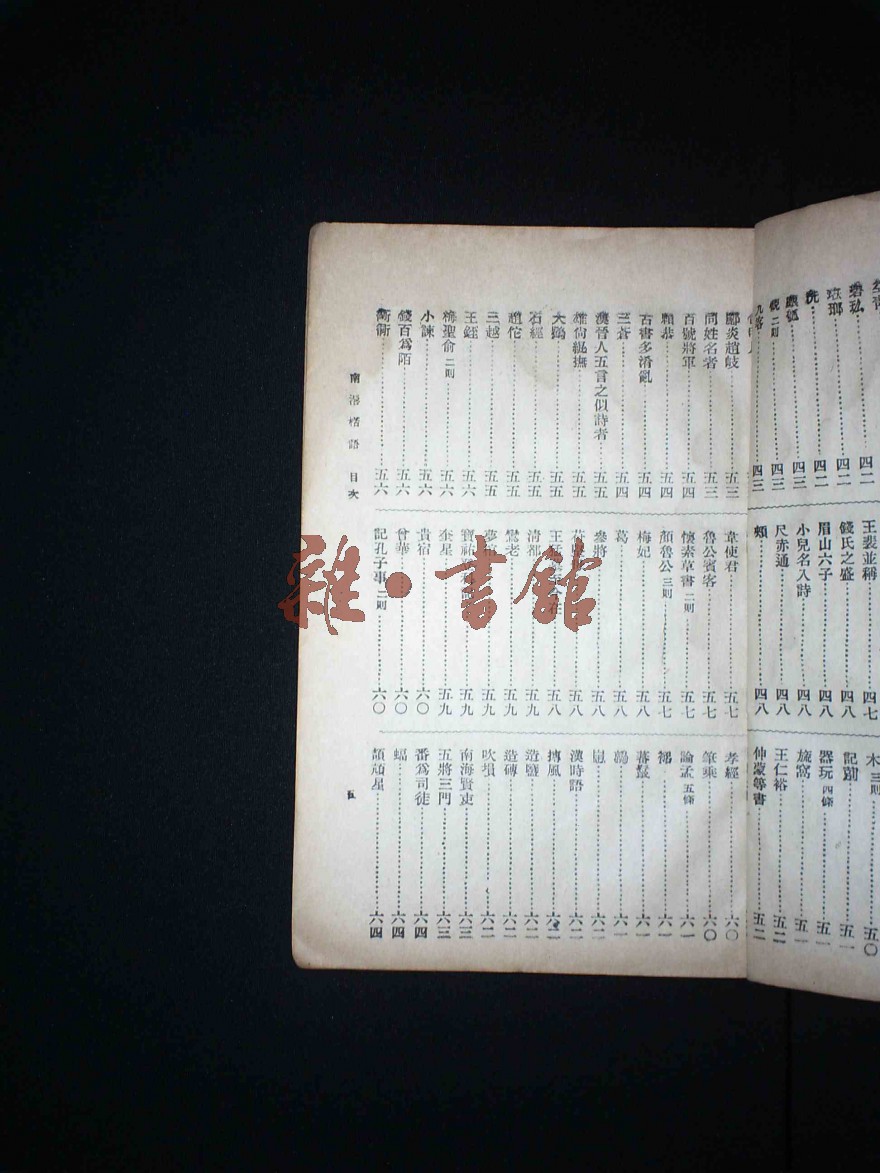 木 三則 五〇
王裴並稱 四七
碧玖 四二
記
五一
錢氏之盛 四八
琅瑯 四二
器玩 四條 五一
眉山六子 四八
四二
旋窩 五一
小兒名入詩 四八
四三
王仁裕 五二
尺赤通 四八
二則 四三
仲蒙等書 五二
頰 四八
九容 四三
酈炎趙岐 五三
同姓名者 五三
百號將軍 五四
賴恭 五四
古書多淆亂 五四
三蒼 五四
漢晉人五言之似詩者 五五
雄伺緆撫 五五
大鷄 五五
石經 五五
趙佗 五五
三越 五五
王銍 五六
梅聖俞 二則 五六
小諫 五六
錢百為陌 五六
五六
韋使君 五七
魯公賓客 五七
懷素草書 二則 五七
顏魯公 三則 五七
梅妃 五八
葛 五八
參將 五八
五八
王 五八
清都 五九
鸞老 五九
夢 五九
寶祐 五九
奎星 五九
貴宿 六〇
曾華 六〇
記孔子事 二則 六〇
孝經 六〇
筆乘 六〇
論孟 五條 六一
裙 六一
蕃鬘 六一
鷊 六一
嵐 六二
漢時語 六二
摶風 六二
造鹽 六二
造磚 六二
吹塤 六二
南海賢吏 六三
五將三門 六三
番為司徒 六四
蝠 六四
頡頏星 六四
南漘楛語 目次
五
雜·書館